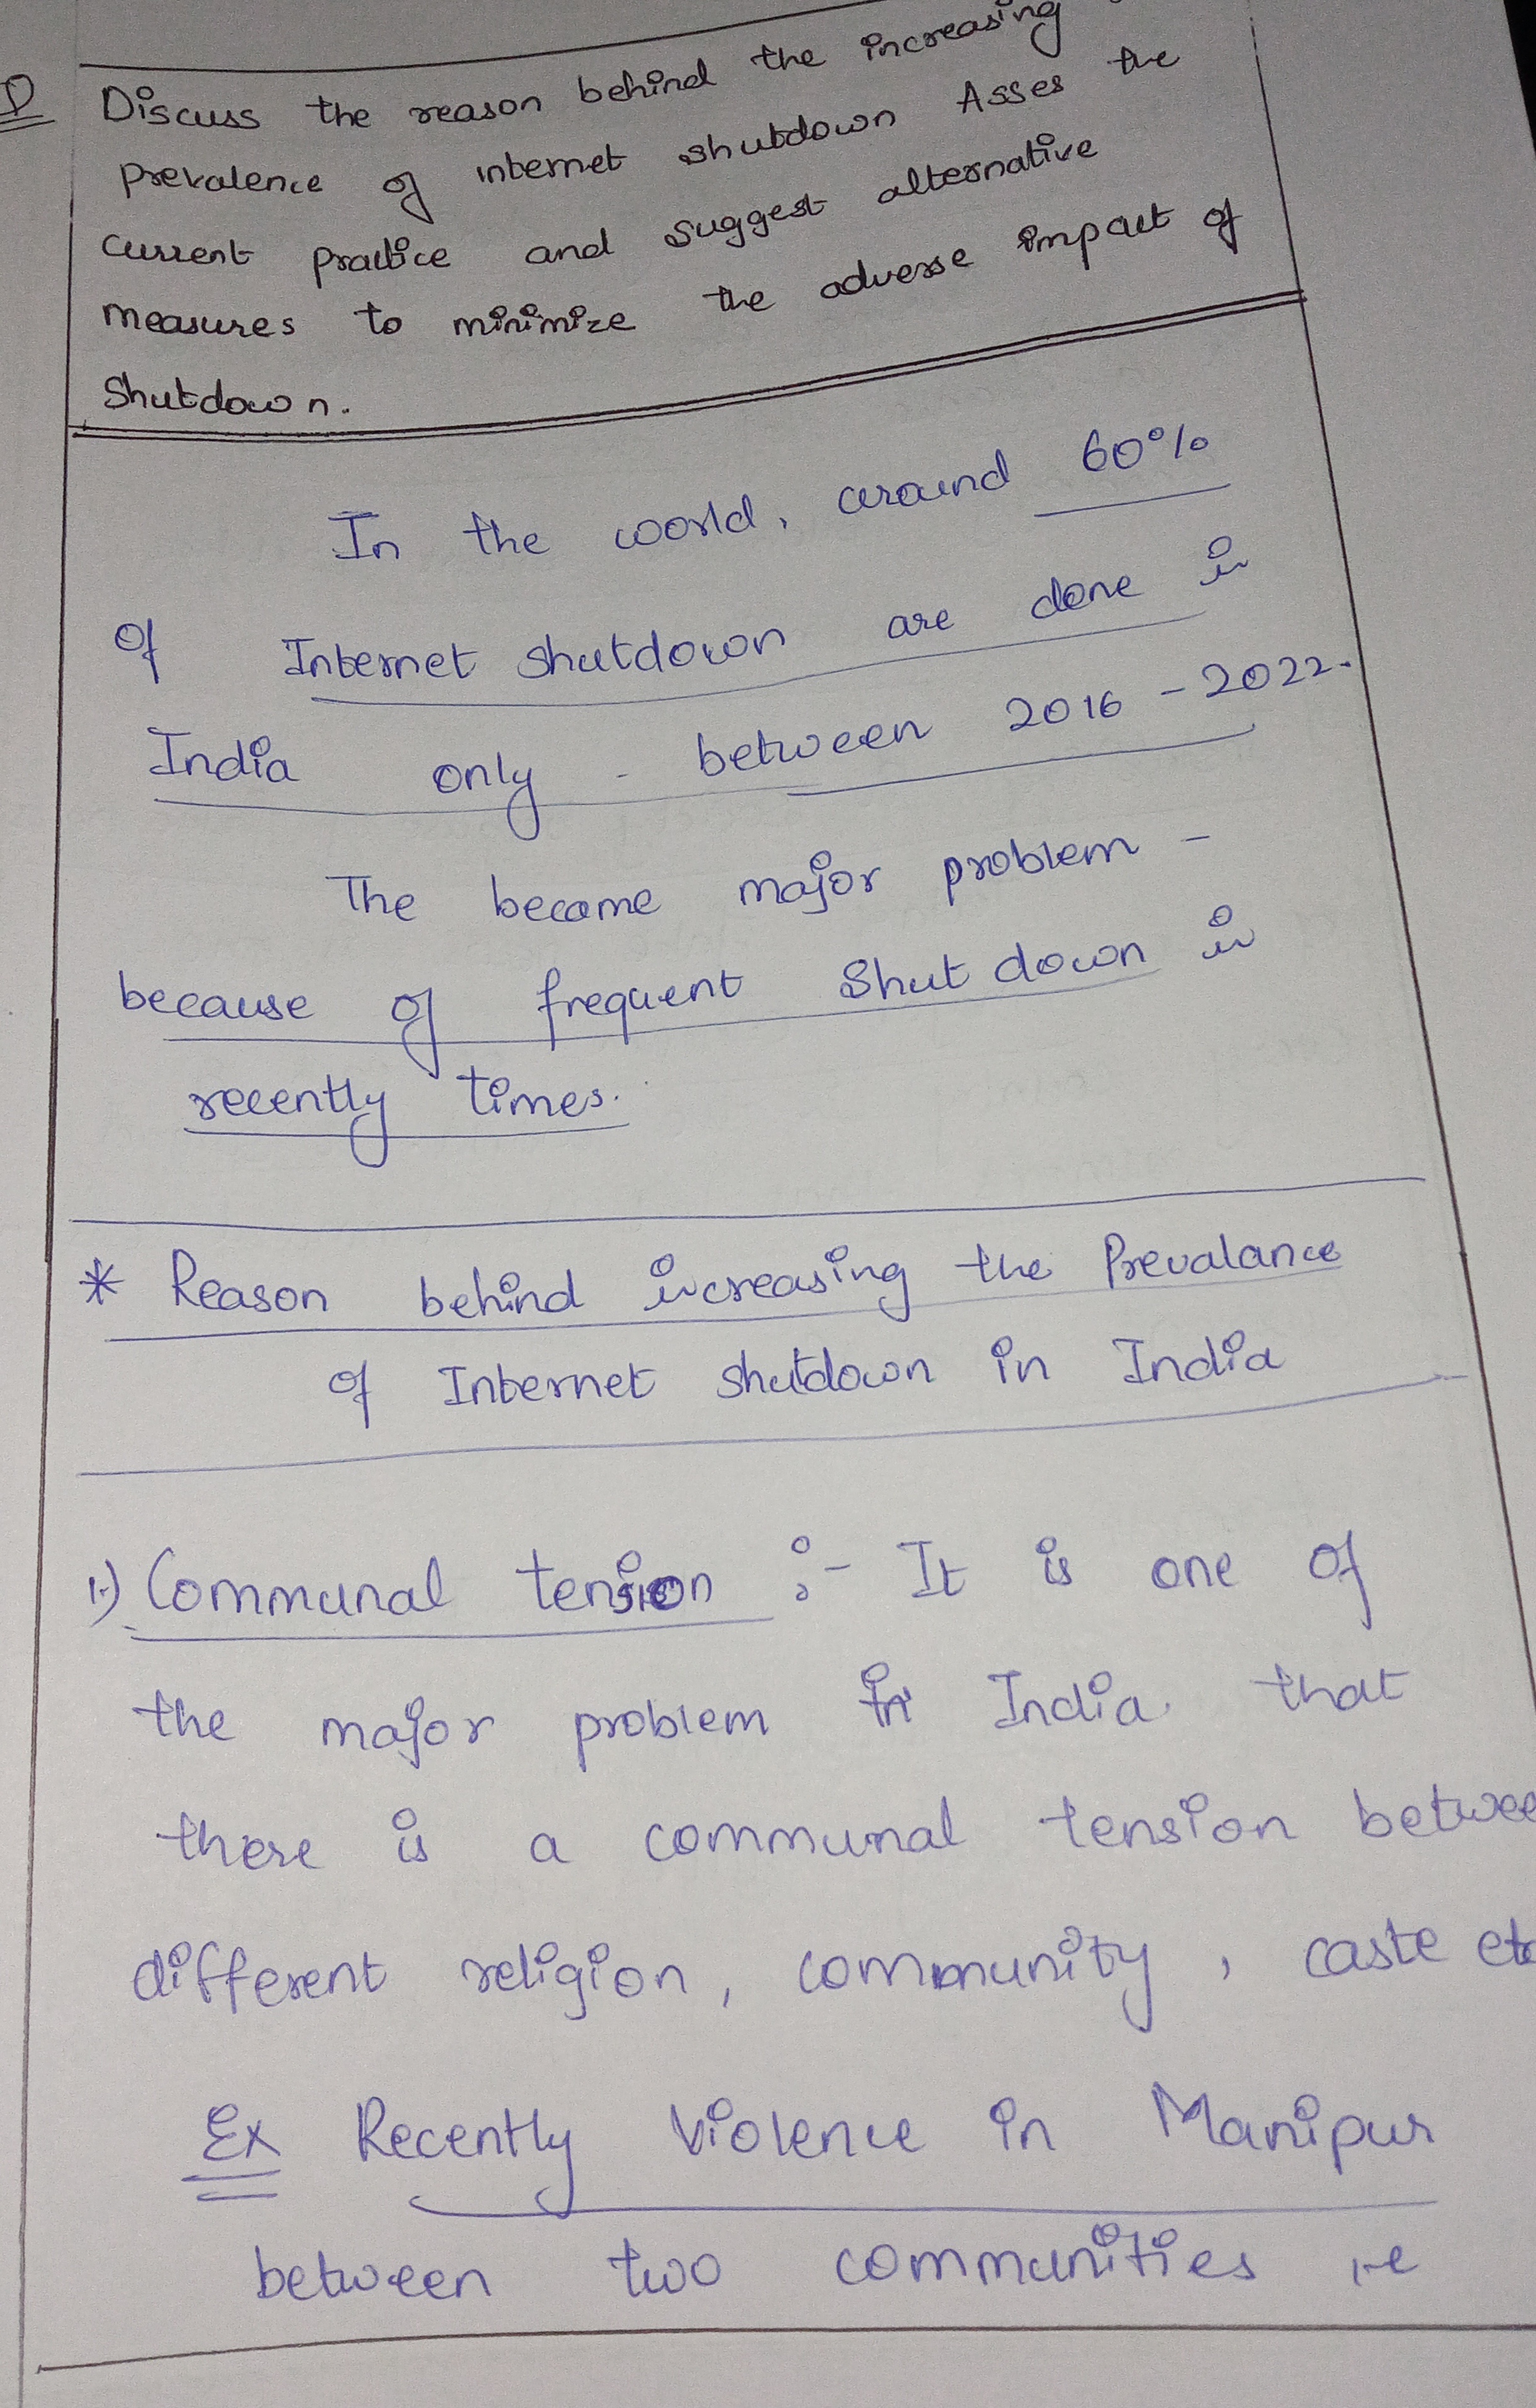 Discuss the reason behind the increasing
prevalence of internet shutdown Asses the
current practice and suggest alternative
measures to minimize the adverse impact of
Shutdown.
In the world, around 60%
of Internet shutdown are done in
India only - between 2016 - 2022.
The become major problem -
because of frequent Shut down in
recently times.
* Reason behind increasing the Prevalance
of Internet shutdown in India
1.) Communal tension :- It is one of
the major problem in India that
there is a communal tension betwee
different religion, community, caste etc
Ex Recently Violence in Manipur
between two communities i.e